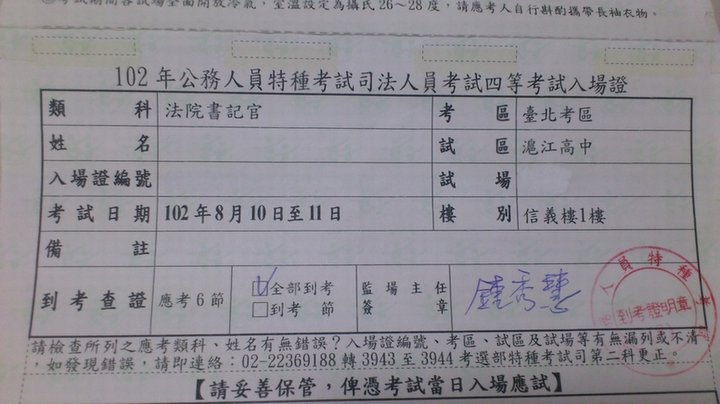 考試期間各試場全面開放冷氣，室溫設定為攝氏26～28度，請應考人自行斟酌攜帶長袖衣物。
102年公務人員特種考試司法人員考試四等考試入場證
類科 法院書記官 考區 臺北考區
姓名 試區 滬江高中
入場證編號 試場
考試日期 102年8月10日至11日 樓別 信義樓1樓
備註
到考查證 應考6節 ☑全部到考 監場主任 鍾秀慧
□到考 節 簽章
人員特種考
到考證明章
請檢查所列之應考類科、姓名有無錯誤？入場證編號、考區、試區及試場等有無漏列或不清
，如發現錯誤，請即連絡：02-22369188轉3943至3944考選部特種考試司第二科更正。
【請妥善保管，俾憑考試當日入場應試】